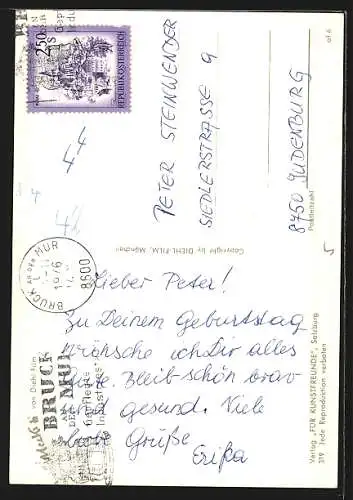 Lieber Peter!
Zu Deinem Geburtstag
wünsche ich Dir alles
Gute. Bleib schön brav
und gesund. Viele
liebe Grüße
Erika
PETER STEINWENDER
SIEDLERSTRASSE 9
8750 JUDENBURG
Postleitzahl
2.50
REPUBLIK ÖSTERREICH
BRUCK AN DER MUR
8600
BRUCK
AN
DER
MUR
Copyright by DIEHL-FILM, München
von Diehl-Film
Verlag „FÜR KUNSTFREUNDE", Salzburg
319 Jede Reproduktion verboten
44
5